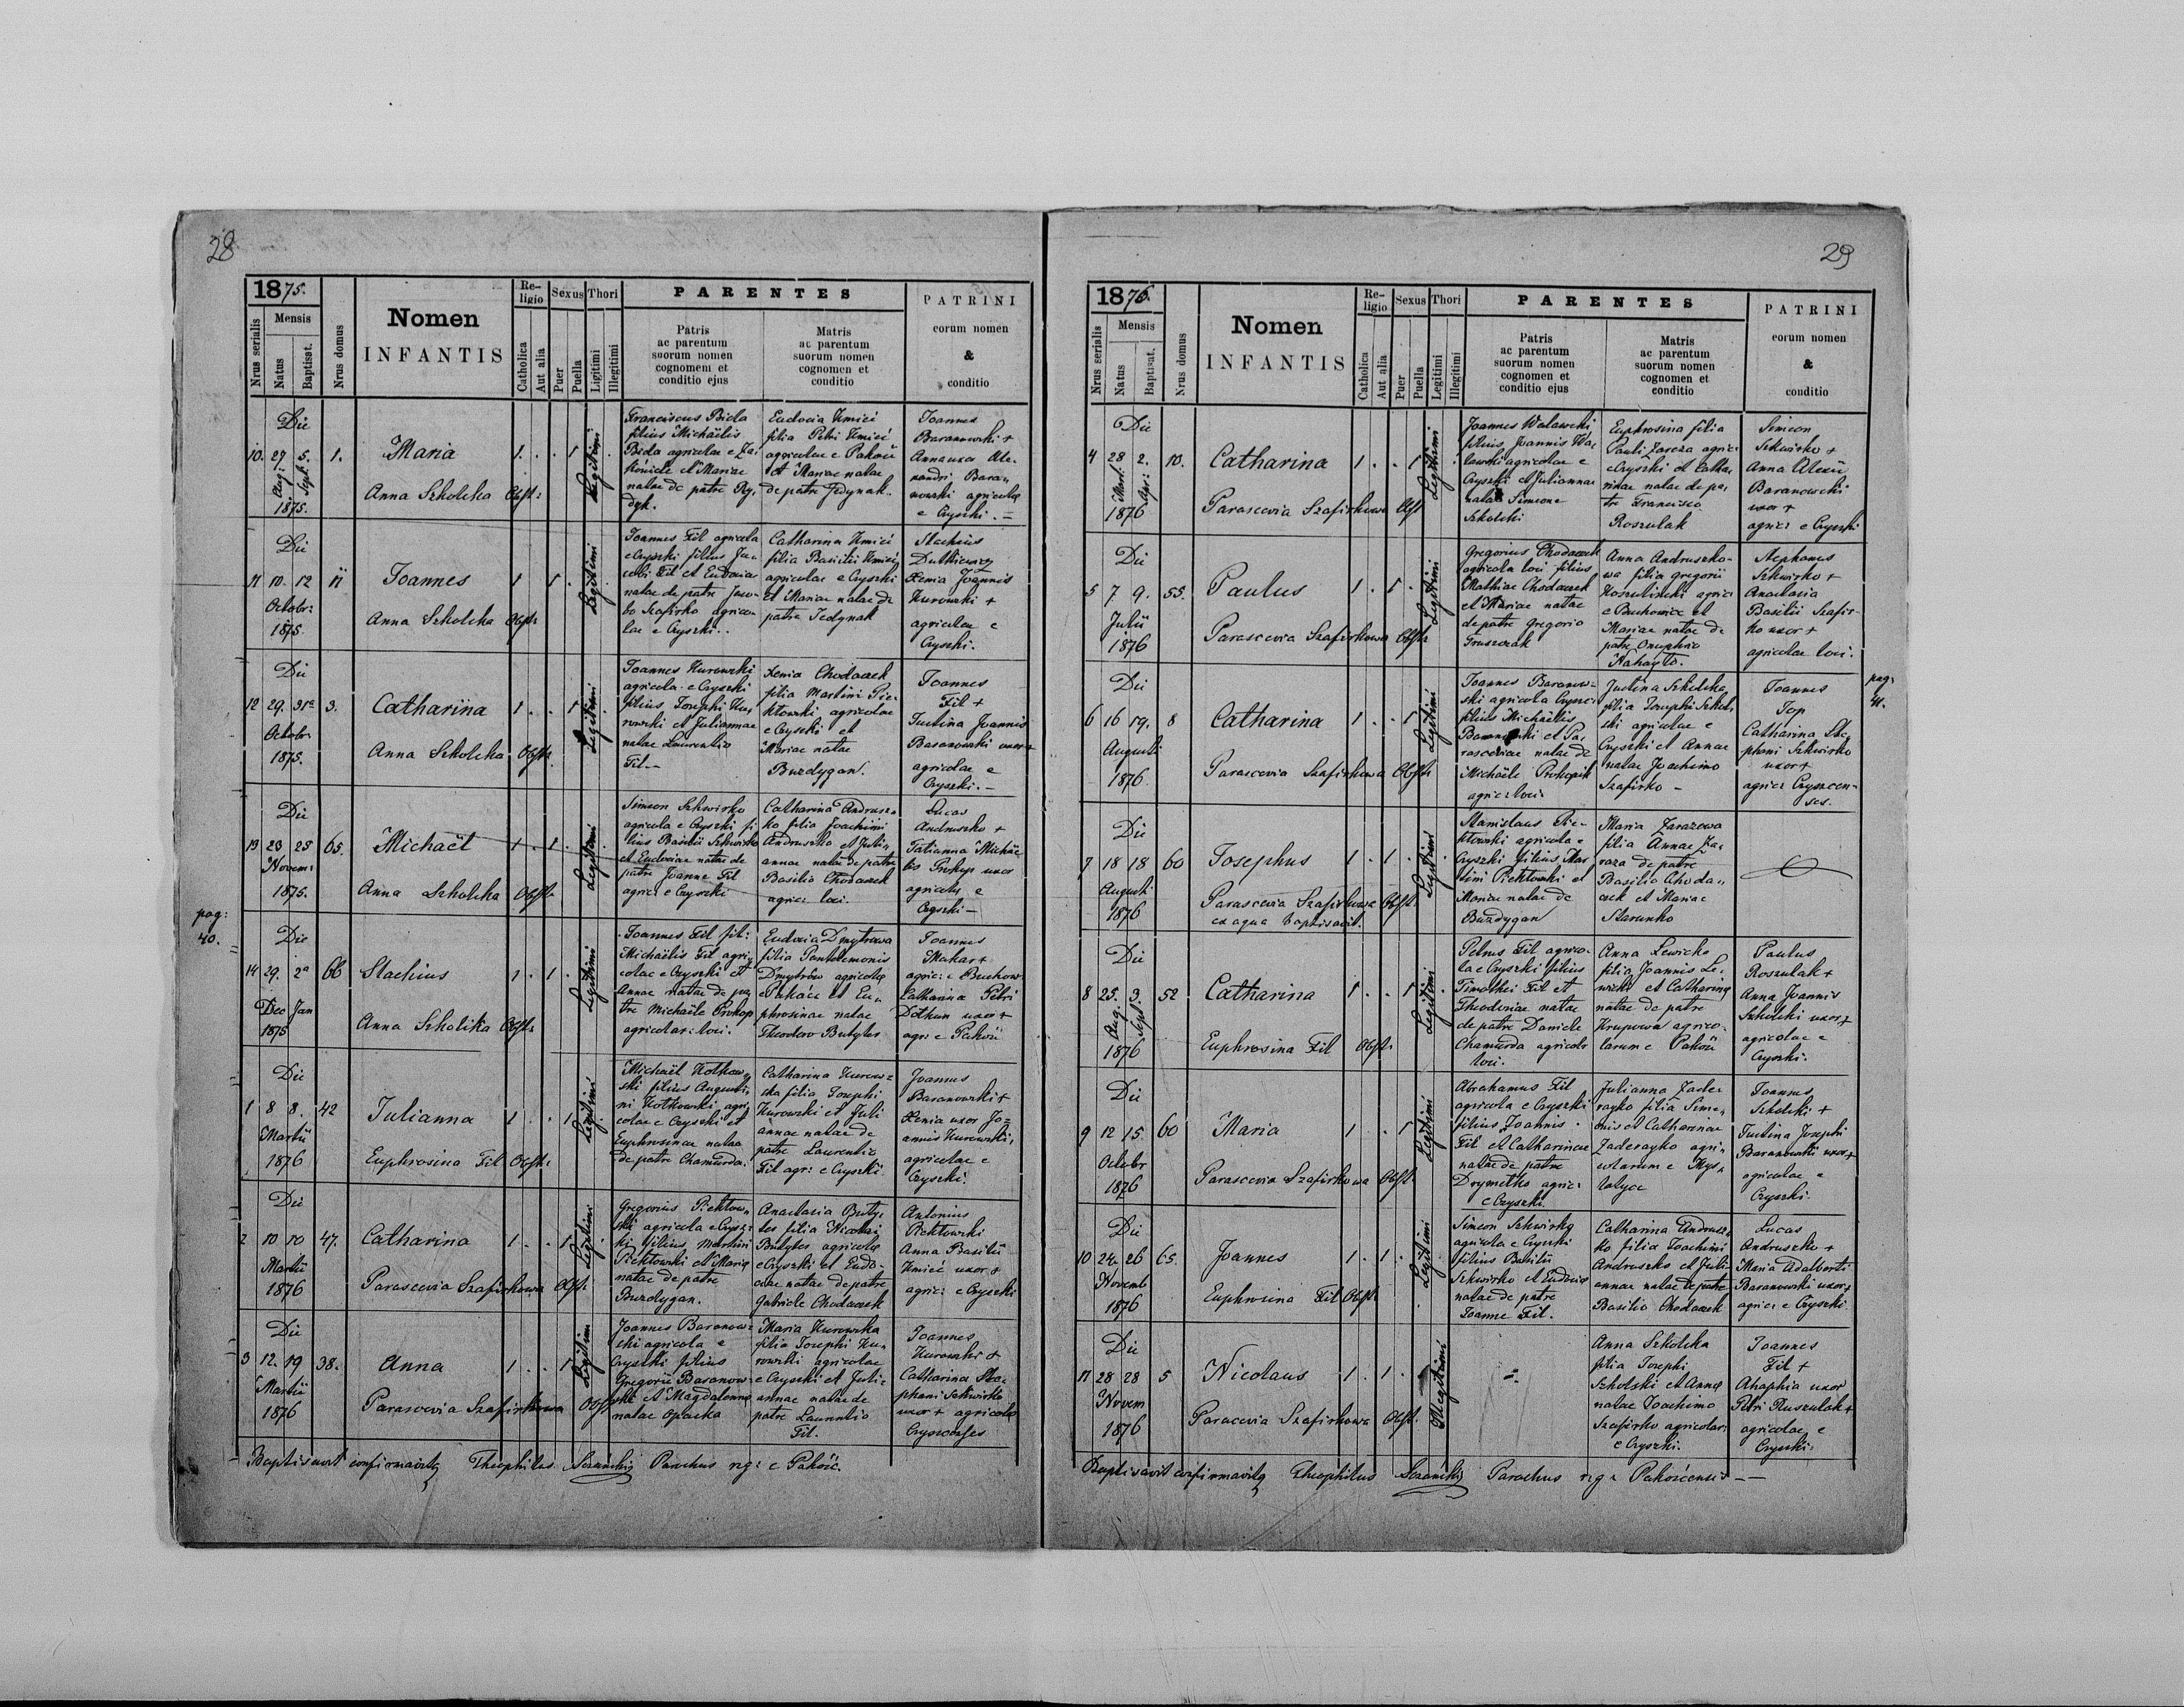 28
1875.
Nrus serialis
Mensis
Natus
Baptisat.
Nrus domus
Nomen
INFANTIS
Re-
ligio
Catholica
Aut alia
Sexus
Puer
Puella
Thori
Ligitimi
Illegitimi
PARENTES
Patris
ac parentum
suorum nomen
cognomem et
conditio ejus
Matris
ac parentum
suorum nomen
cognomen et
conditio
PATRINI
eorum nomen
&
conditio
Die
10. 27 5. 1. Maria 1. . . 1 .
Aug: Sept.
1875.
Anna Szkolska Obst:
Legitimi
Franciscus Bida
filius Michaëlis
Bida agricolae e
et Mariae
natae de patre
Eudocia Kmieć
filia Petri Kmieć
agricolae e Pakość
et Mariae natae
de patre Jedynak.
Joannes
Baranowski +
Anna uxor Ale-
xandri Bara-
nowski agricolae
e Czyszki. =
Die
11 10. 12 11 Joannes 1 . 1 .
Octobr:
1875
Anna Szkolska Obst:
Legitimi
Joannes Fil agricola
e Czyszki filius Ja-
cobi Fil et Eudociae
natae de patre Jaco-
bo Szafirko agrico-
lae e Czyszki..
Catharina Kmieć
filia Basilii Kmieć
agricolae e Czyszki
et Mariae natae de
patre Jedynak
Stachius
Dutkiewicz
Xenia Joannis
Kurowski +
agricolae e
Czyszki.
Die
12 29. 31a 3. Catharina 1 . . 1 .
Octobr.
1875.
Anna Szkolska Obst:
Legitimi
Joannes Kurowski
agricola e Czyszki
filius Josephi Ku-
rowski et Juliannae
natae Laurentio
Fil--
Xenia Chodaczek
filia Martini Pie-
ktowski agricolae
e Czyszki et
Mariae natae
Burdygan.
Joannes
Fil +
Justina Joannis
Baranowski uxor+
agricolae e
Czyszki. -
Die
13 23 25 65. Michaël 1 . 1 .
Novem:
1875.
Anna Szkolska Obst:
Legitimi
Simeon Szkwirko
agricola e Czyszki fi
lius Basilii Szkwirko
et Eudociae natae de
patre Joanne Fil
agric: e Czyszki
Catharina Andrusz-
ko filia Joachimi
Andruszko et Juli-
annae natae de patre
Basilio Chodaczek
agric: loci.
Lucas
Andruszko +
Tatianna Michaë
lis Prokop uxor
agricolae e
Czyszki -
pag:
40.
Die
14 29. 2a 66 Stachius 1 . 1 .
Dec Jan
1875
Anna Szkolska Obst:
Legitimi
Joannes Fil fil:
Michaëlis Fil agri-
colae e Czyszki et
Annae natae de pa-
tre Michaële Prokop
agricolar: loci.
Eudocia Dmytrowa
filia Pantalemonis
Dmytrów agricolae
e Pakość et Eu-
phrosinae natae
Theodoro Butyter
Joannes
Makar +
agric: e Buchow
Catharina Petri
Dothum uxor +
agr: e Pakość
Die
1 8 8. 42 Julianna 1 . . 1 .
Martii
1876
Euphrosina Fil Obst:
Legitimi
Michaël Kotkow-
ski filius Augusti-
ni Kotkowski agri-
colae e Czyszki et
Euphrosinae natae
de patre Chamurda.
Catharina Kurow-
ska filia Josephi
Kurowski et Juli
annae natae de
patre Laurentio
Fil agr: e Czyszki
Joannes
Baranowski +
Xenia uxor Jo-
annis Kurowski,
agricolae e
Czyszki.
Die
2 10 10 47. Catharina 1. . . 1 .
Martii
1876
Parascevia Szafirkowa Obst:
Legitimi
Gregorius Piektow-
ski agricola e Czysz-
ki filius Martini
Piektowski et Mariae
natae de patre
Burdygan.
Anastasia Buty-
ter filia Nicolai
Butyter agricolae
e Czyszki et Eudo-
ciae natae de patre
Gabriele Chodaczek
Antonius
Piektowski
Anna Basilii
Kmieć uxor +
agric: e Czyszki
Die
3 12. 19 38. Anna 1. . . 1
Martii
1876
Parascevia Szafirkowa Obst
Legitimi
Joannes Baranow-
ski agricola e
Czyszki filius
Gregorii Baranow-
ski et Magdalenae
natae Opacka
Maria Kurowska
filia Josephi Ku-
rowski agricolae
e Czyszki et Juli-
annae natae de
patre Laurentio
Fil.
Joannes
Kurowski +
Catharina Ste-
phani Szkwirko
uxor + agricolae
Czyszczenses
Baptisavit confirmavitq Theophilus Parochus rg: e Pakość.
29
1876.
Nrus serialis
Mensis
Natus
Baptisat.
Nrus domus
Nomen
INFANTIS
Re-
ligio
Catholica
Aut alia
Sexus
Puer
Puella
Thori
Legitimi
Illegitimi
PARENTES
Patris
ac parentum
suorum nomen
cognomen et
conditio ejus
Matris
ac parentum
suorum nomen
cognomen et
conditio
PATRINI
eorum nomen
&
conditio
Die
4 28 2. 10. Catharina 1 . . 1 .
Mart: Apr:
1876
Parascevia Szafirkowa Obst
Legitimi
Joannes Walawski
filius Joannis Wa-
lawski agricolae e
Czyszki et Juliannae
natae Simeone
Szkolski
Euphrosina filia
Pauli Zareza agric:
e Czyszki et Catha-
rinae natae de pa-
tre Francisco
Roszulak
Simeon
Szkwirko +
Anna Alexii
Baranowski
uxor +
agric: e Czyszki
Die
5 7 9. 55. Paulus 1 . 1 .
Julii
1876
Parascevia Szafirkowa Obst:
Legitimi
Gregorius Chodaczek
agricola loci filius
Mathiae Chodaczek
et Mariae natae
de patre Gregorio
Gruszczak
Anna Andruszko-
wa filia Gregorii
Koszulinski agric:
e Buchowice et
Mariae natae de
patre Onuphrio
Kahayło.
Stephanus
Szkwirko +
Anastasia
Basilii Szafir-
ko uxor +
agricolae loci.
Die
6 16 19. 8 Catharina 1 . . 1
Augusti
1876
Parascevia Szafirkowa Obst:
Legitimi
Joannes Baranow-
ski agricola Czysz:
filius Michaëlis
Baranowski et Pa-
rasceviae natae de
Michaële Prokopik
agric: loci
Justina Szkolska
filia Josephi Szkol-
ski agricolae e
Czyszki et Annae
natae Joachimo
Szafirko -
Joannes
Top
Catharina Ste-
phani Szkwirko
uxor +
agric: Czyszczen-
ses.
pag:
41.
Die
7 18 18 60 Josephus 1 . 1 .
Augusti
1876
Parascevia Szafirkowa Obst:
ex aqua baptisavit.
Legitimi
Stanislaus Pie-
ktowski agricola e
Czyszki filius Mar
tini Piektowski et
Mariae natae de
Burdygan
Maria Zarazowa
filia Annae Za-
raza de patre
Basilio Choda-
czek et Mariae
Starunko
Die
8 25. 3. 52 Catharina 1 . . 1 .
Aug. Sept.
1876
Euphrosina Fil Obst:
Legitimi
Petrus Fil agrico-
la e Czyszki filius
Timothei Fil et
Theodoriae natae
de patre Daniele
Chamurda agricola
loci.
Anna Lewicka
filia Joannis Le-
wicki et Catharinae
natae de patre
Krupowa agrico-
larum e Pakość
Paulus
Roszulak +
Anna Joannis
Szkolski uxor +
agricolae e
Czyszki.
Die
9 12 15. 60 Maria 1 . . 1
Octobr
1876
Parascevia Szafirkowa Obst:
Legitimi
Abrahamus Fil
agricola e Czyszki
filius Joannis
Fil et Catharinae
natae de patre
Drymetko agric:
e Czyszki.
Julianna Zade-
rayko filia Sime-
onis et Catharinae
Zaderayko agri-
colarum e
Joannes
Szkolski +
Justina Josephi
Baranowski uxor +
agricolae e
Czyszki.
Die
10 24. 26 65. Joannes 1. . 1 .
Novemb
1876
Euphrosina Fil Obst:
Legitimi
Simeon Szkwirko
agricola e Czyszki
filius Basilii
Szkwirko et Eudociae
natae de patre
Joanne Fil.
Catharina Andrusz-
ko filia Joachimi
Andruszko et Juli-
annae natae de patre
Basilio Chodaczek
Lucas
Andruszko +
Maria Adalberti
Baranowski uxor +
agric: e Czyszki
Die
11 28 28 5 Nicolaus 1 . 1 .
Novem
1876
Paracevia Szafirkowa Obst:
Illegitimi
Anna Szkolska
filia Josephi
Szkolski et Annae
natae Joachimo
Szafirko agricolar:
e Czyszki.
Joannes
Fil +
Ahaphia uxor
Petri Ruszulak +
agricolae e
Czyszki.
Baptisavit confirmavitq Theophilus Parochus rg: Pakościensis --